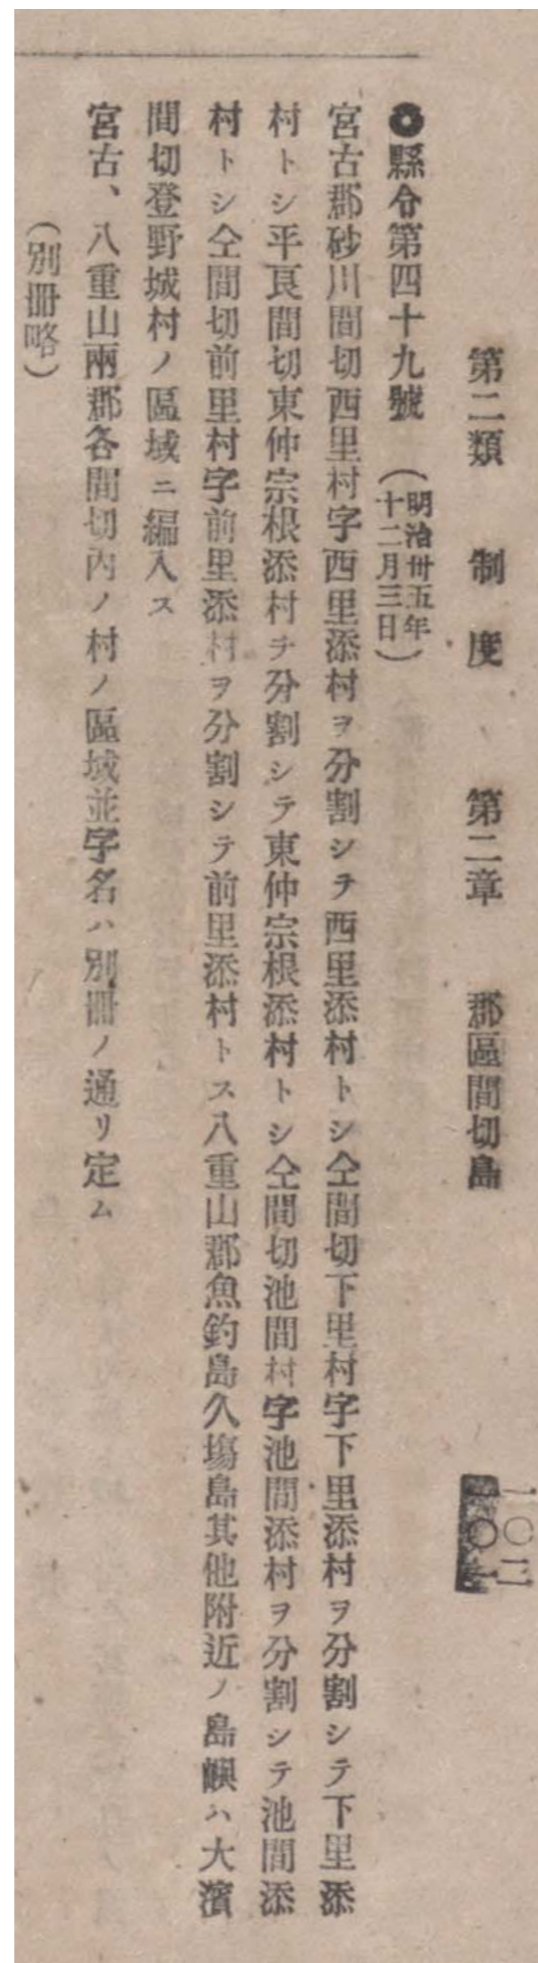 第二類 制度 第二章 郡區間切島
一〇二
◉縣令第四十九號 (明治卅五年十二月三日)
宮古郡砂川間切西里村字西里添村ヲ分割シテ西里添村トシ仝間切下里村字下里添村ヲ分割シテ下里添
村トシ平良間切東仲宗根添村ヲ分割シテ東仲宗根添村トシ仝間切池間村字池間添村ヲ分割シテ池間添
村トシ仝間切前里村字前里添村ヲ分割シテ前里添村トス八重山郡魚釣島久塲島其他附近ノ島嶼ハ大濱
間切登野城村ノ區域ニ編入ス
宮古、八重山兩郡各間切內ノ村ノ區域並字名ハ別冊ノ通リ定ム
(別冊略)